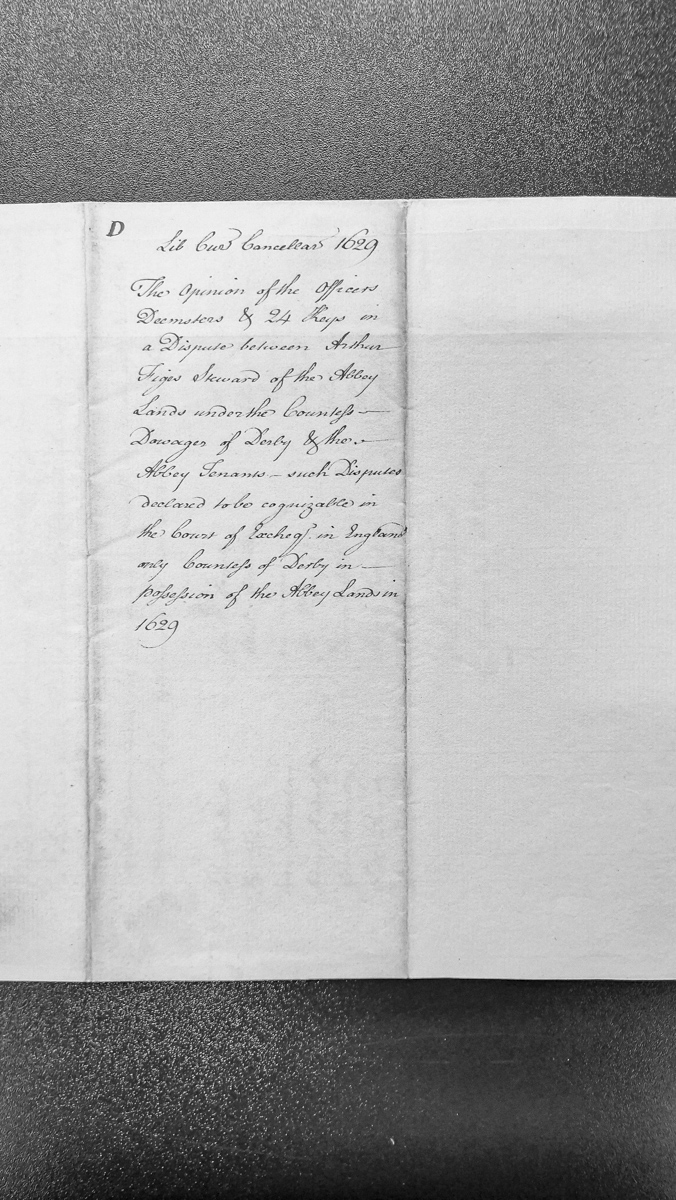 D
Lib Cur Cancellar 1629
The Opinion of the Officers
Deemsters & 24 Keys in
a Dispute between Arthur
Figes Steward of the Abbey
Lands under the Countess —
Dowager of Derby & the —
Abbey Tenants — such Disputes
declared to be cognizable in
the Court of Excheqr. in England
only Countess of Derby in —
possession of the Abbey Lands in
1629